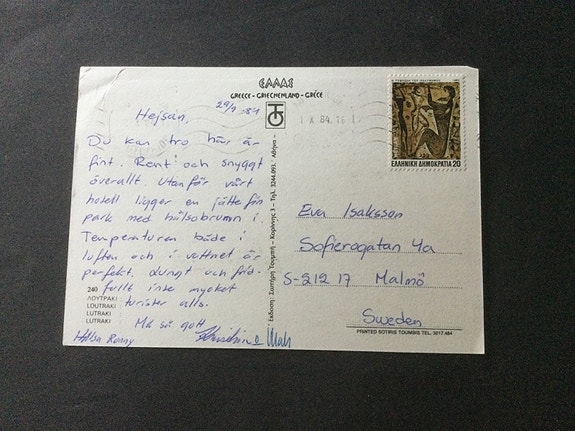 ΕΛΛΑΣ
GREECE - GRIECHENLAND - GRÈCE
29/9 -84
Hejsan,
Du kan tro här är
fint. Rent och snyggt
överallt. Utanför vårt
hotell ligger en jättefin
park med hälsobrunn i.
Temperaturen både i
luften och i vattnet är
perfekt. Lungt och frid-
fullt inse mycket
turister alls.
Må så gott
Hälsa Ronny
240
ΛΟΥΤΡΑΚΙ
LOUTRAKI
LUTRAKI
LUTRAKI
Έκδοση: Σωτήρη Τουμπή - Καρύτσης 3 - Τηλ. 3244.093, Αθήνα
X 84
ΕΛΛΗΝΙΚΗ ΔΗΜΟΚΡΑΤΙΑ 20
Eva Isaksson
Sofierogatan 4a
S-212 17 Malmö
Sweden
PRINTED SOTIRIS TOUMBIS TEL. 3217.464